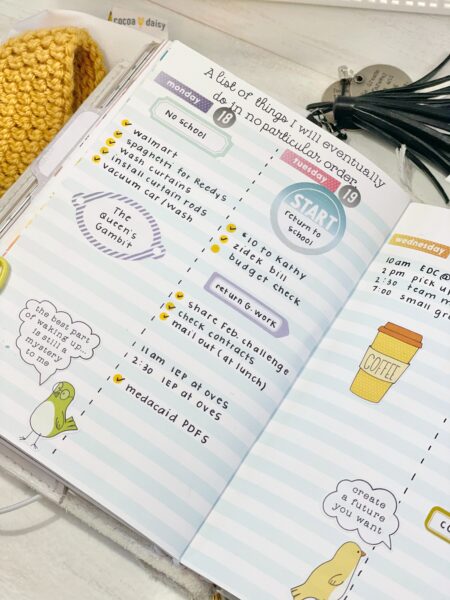 cocoa daisy
A list of things I will eventually
do in no particular order
monday
18
No school
walmart
spaghetti for Reedys
wash curtains
install curtain rods
vacuum car/wash
The
Queen's
Gambit
the best part
of waking up...
is still a
mystery
to me
tuesday
19
START
return to
school
€10 to Kathy
zidek bill
budget check
return @ work
share Feb challenge
check contracts
mail out (at lunch)
11am IEP at OVES
2:30 IEP at OVES
medacaid PDFs
wednesday
10am EDC@
2pm pick up
2:30 team
7:00 small
COFFEE
create a
future
you want